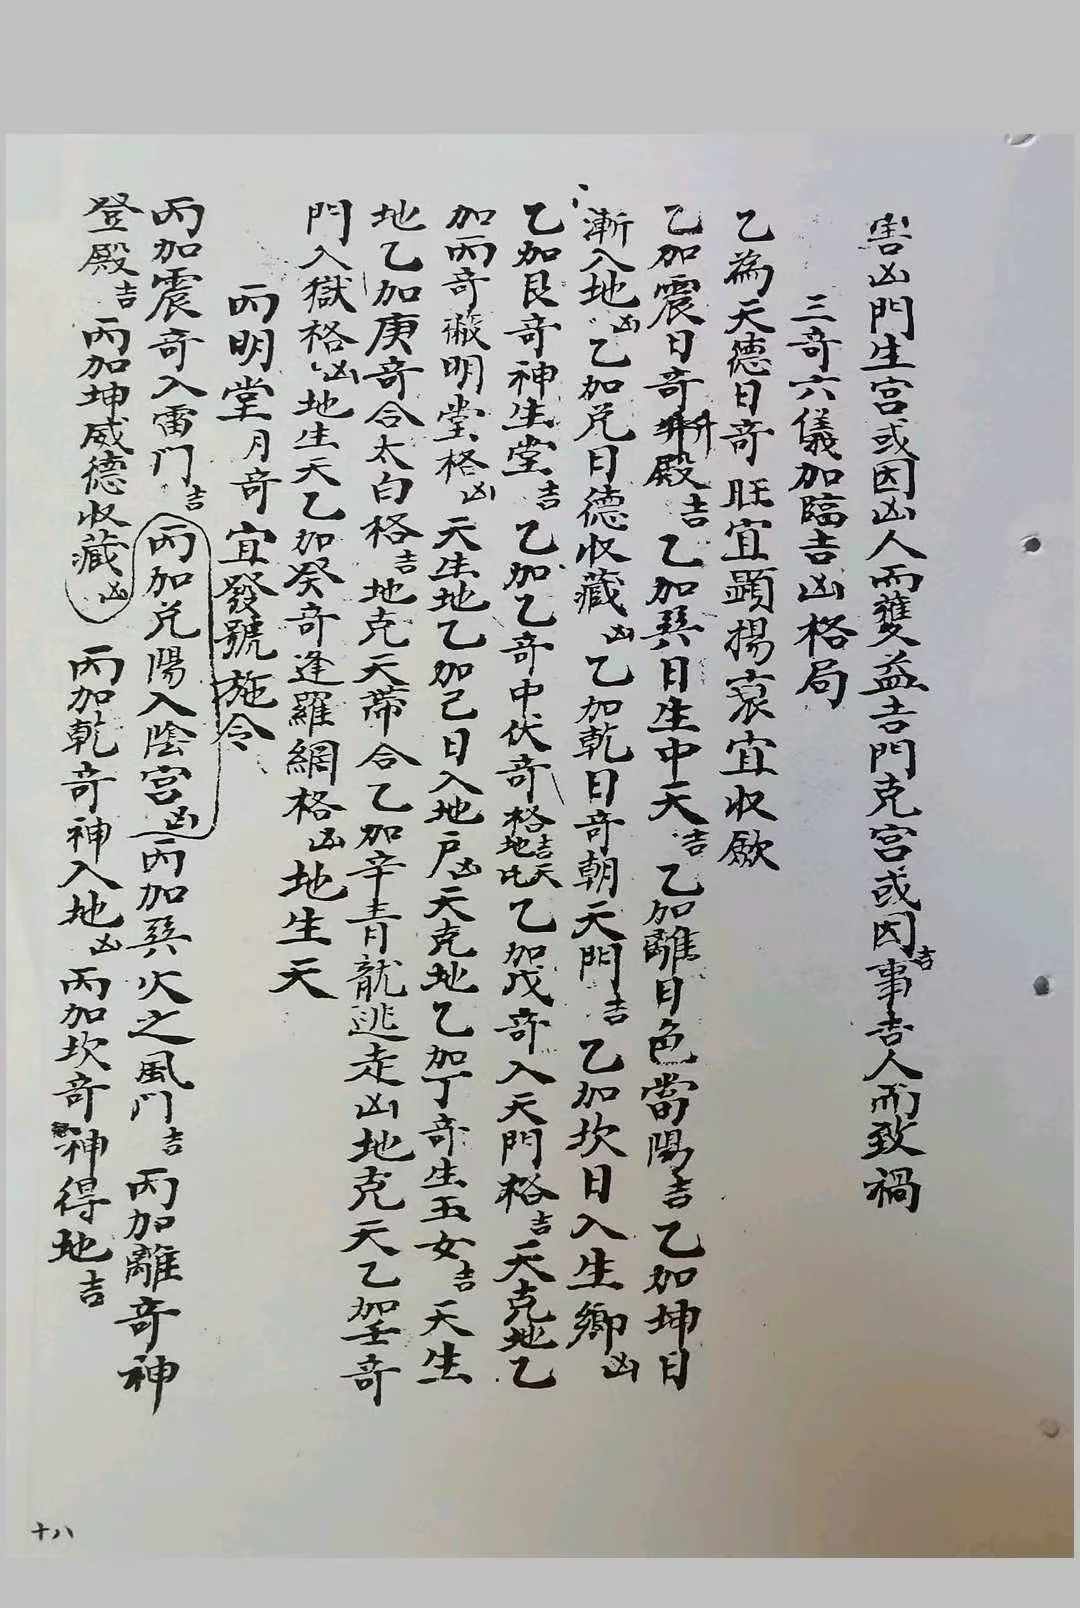 害凶門生宮或因凶人而獲益吉門克宮或因吉事吉人而致禍
三奇六儀加臨吉凶格局
乙為天德日奇旺宜顯揚衰宜收歛
乙加震日奇升殿吉乙加巽日生中天吉乙加離日色當陽吉乙加坤日
漸入地凶乙加兌日德收藏凶乙加乾日奇朝天門吉乙加坎日入生鄉凶
乙加艮奇神生堂吉乙加乙奇中伏奇格吉天地比乙加戊奇入天門格吉天克地乙
加丙奇蔽明堂格凶天生地乙加己日入地户凶天克地乙加丁奇生玉女吉天生
地乙加庚奇合太白格吉地克天蒂合乙加辛青龍逃走凶地克天乙加壬奇
門入獄格凶地生天乙加癸奇逢羅網格凶地生天
丙明堂月奇宜發號施令
丙加震奇入雷門吉丙加兌陽入陰宮凶丙加巽火之風門吉丙加離奇神
登殿吉丙加坤威德收藏凶丙加乾奇神入地凶丙加坎奇神得地吉
十八